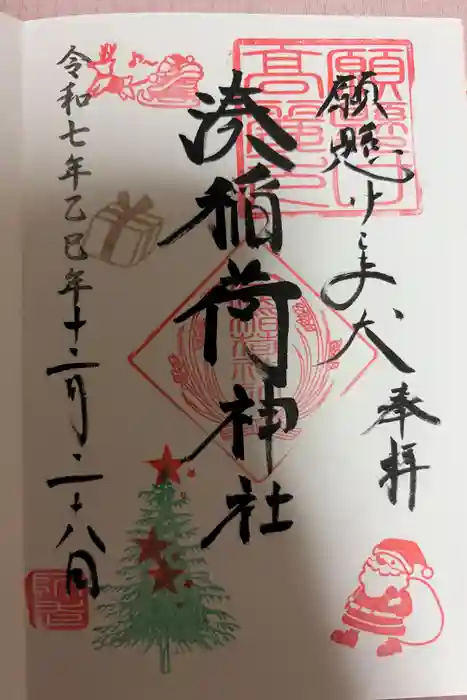 願懸け
こま犬
奉拝
湊稲荷神社
令和七年乙巳年十二月二十八日